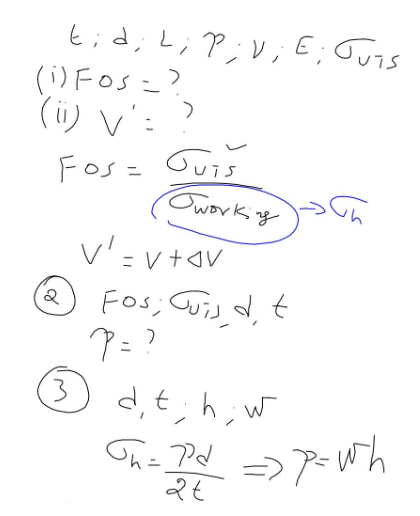 t; d, L, P, ν, E, σ_uts
(i) FOS = ?
(ii) V' = ?
FOS = σ_uts / σ_working → σ_h
V' = V + ΔV
② FOS, σ_uts, d, t
P = ?
③ d, t, h, w
σ_h = Pd / 2t ⇒ P = wh